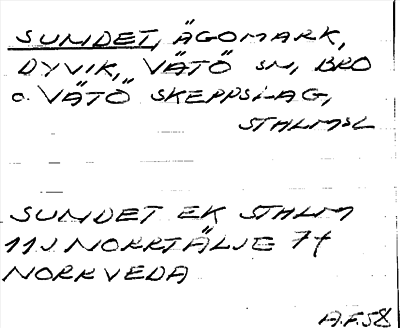 SUNDET, ÄGOMARK,
DYVIK, VÄTÖ SN, BRO
o. VÄTÖ SKEPPSLAG,
STHLMSL
SUNDET EK STHLM
11J NORRTÄLJE 7f
NORRVEDA
A.F.58